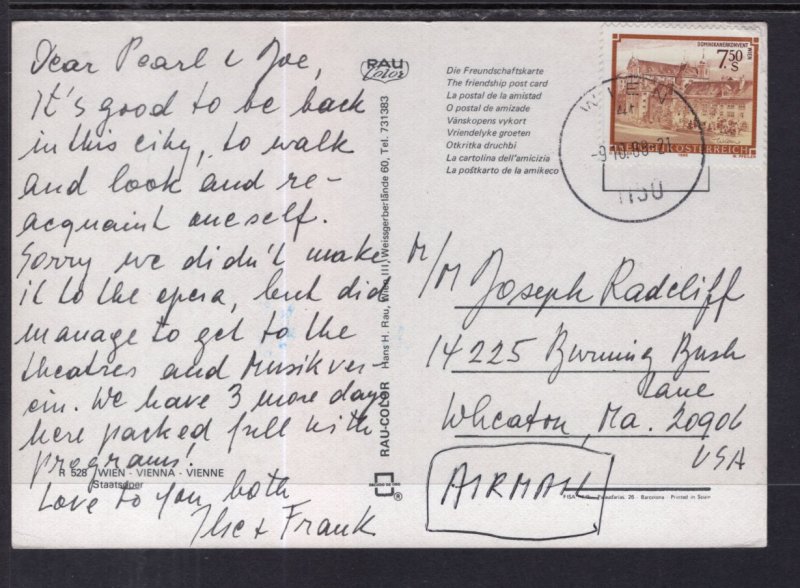 Dear Pearl & Joe,
It's good to be back
in this city, to walk
and look and re-
acquaint oneself.
Sorry we didn't make
it to the opera, but did
manage to get to the
theatres and Musikver-
ein. We have 3 more days
here packed full with
programs!
Love to you both
Ilse & Frank
R 528 WIEN - VIENNA - VIENNE
Staatsoper
RAU
Color
RAU-COLOR Hans H. Rau, Wien III, Weissgerberlände 60, Tel. 731383
Die Freundschaftskarte
The friendship post card
La postal de la amistad
O postal de amizade
Vänskopens vykort
Vriendelyke groeten
Otkritka druchbi
La cartolina dell'amicizia
La poŝtkarto de la amikeco
DOMINIKANERKONVENT
WIEN
7.50
S
REPUBLIK ÖSTERREICH
WIEN
-9.10.86-21
1150
M/M Joseph Radcliff
14225 Burning Bush
Lane
Wheaton, Ma. 20906
USA
AIRMAIL
FISA Palaudarias, 26 - Barcelona Printed in Spain
®